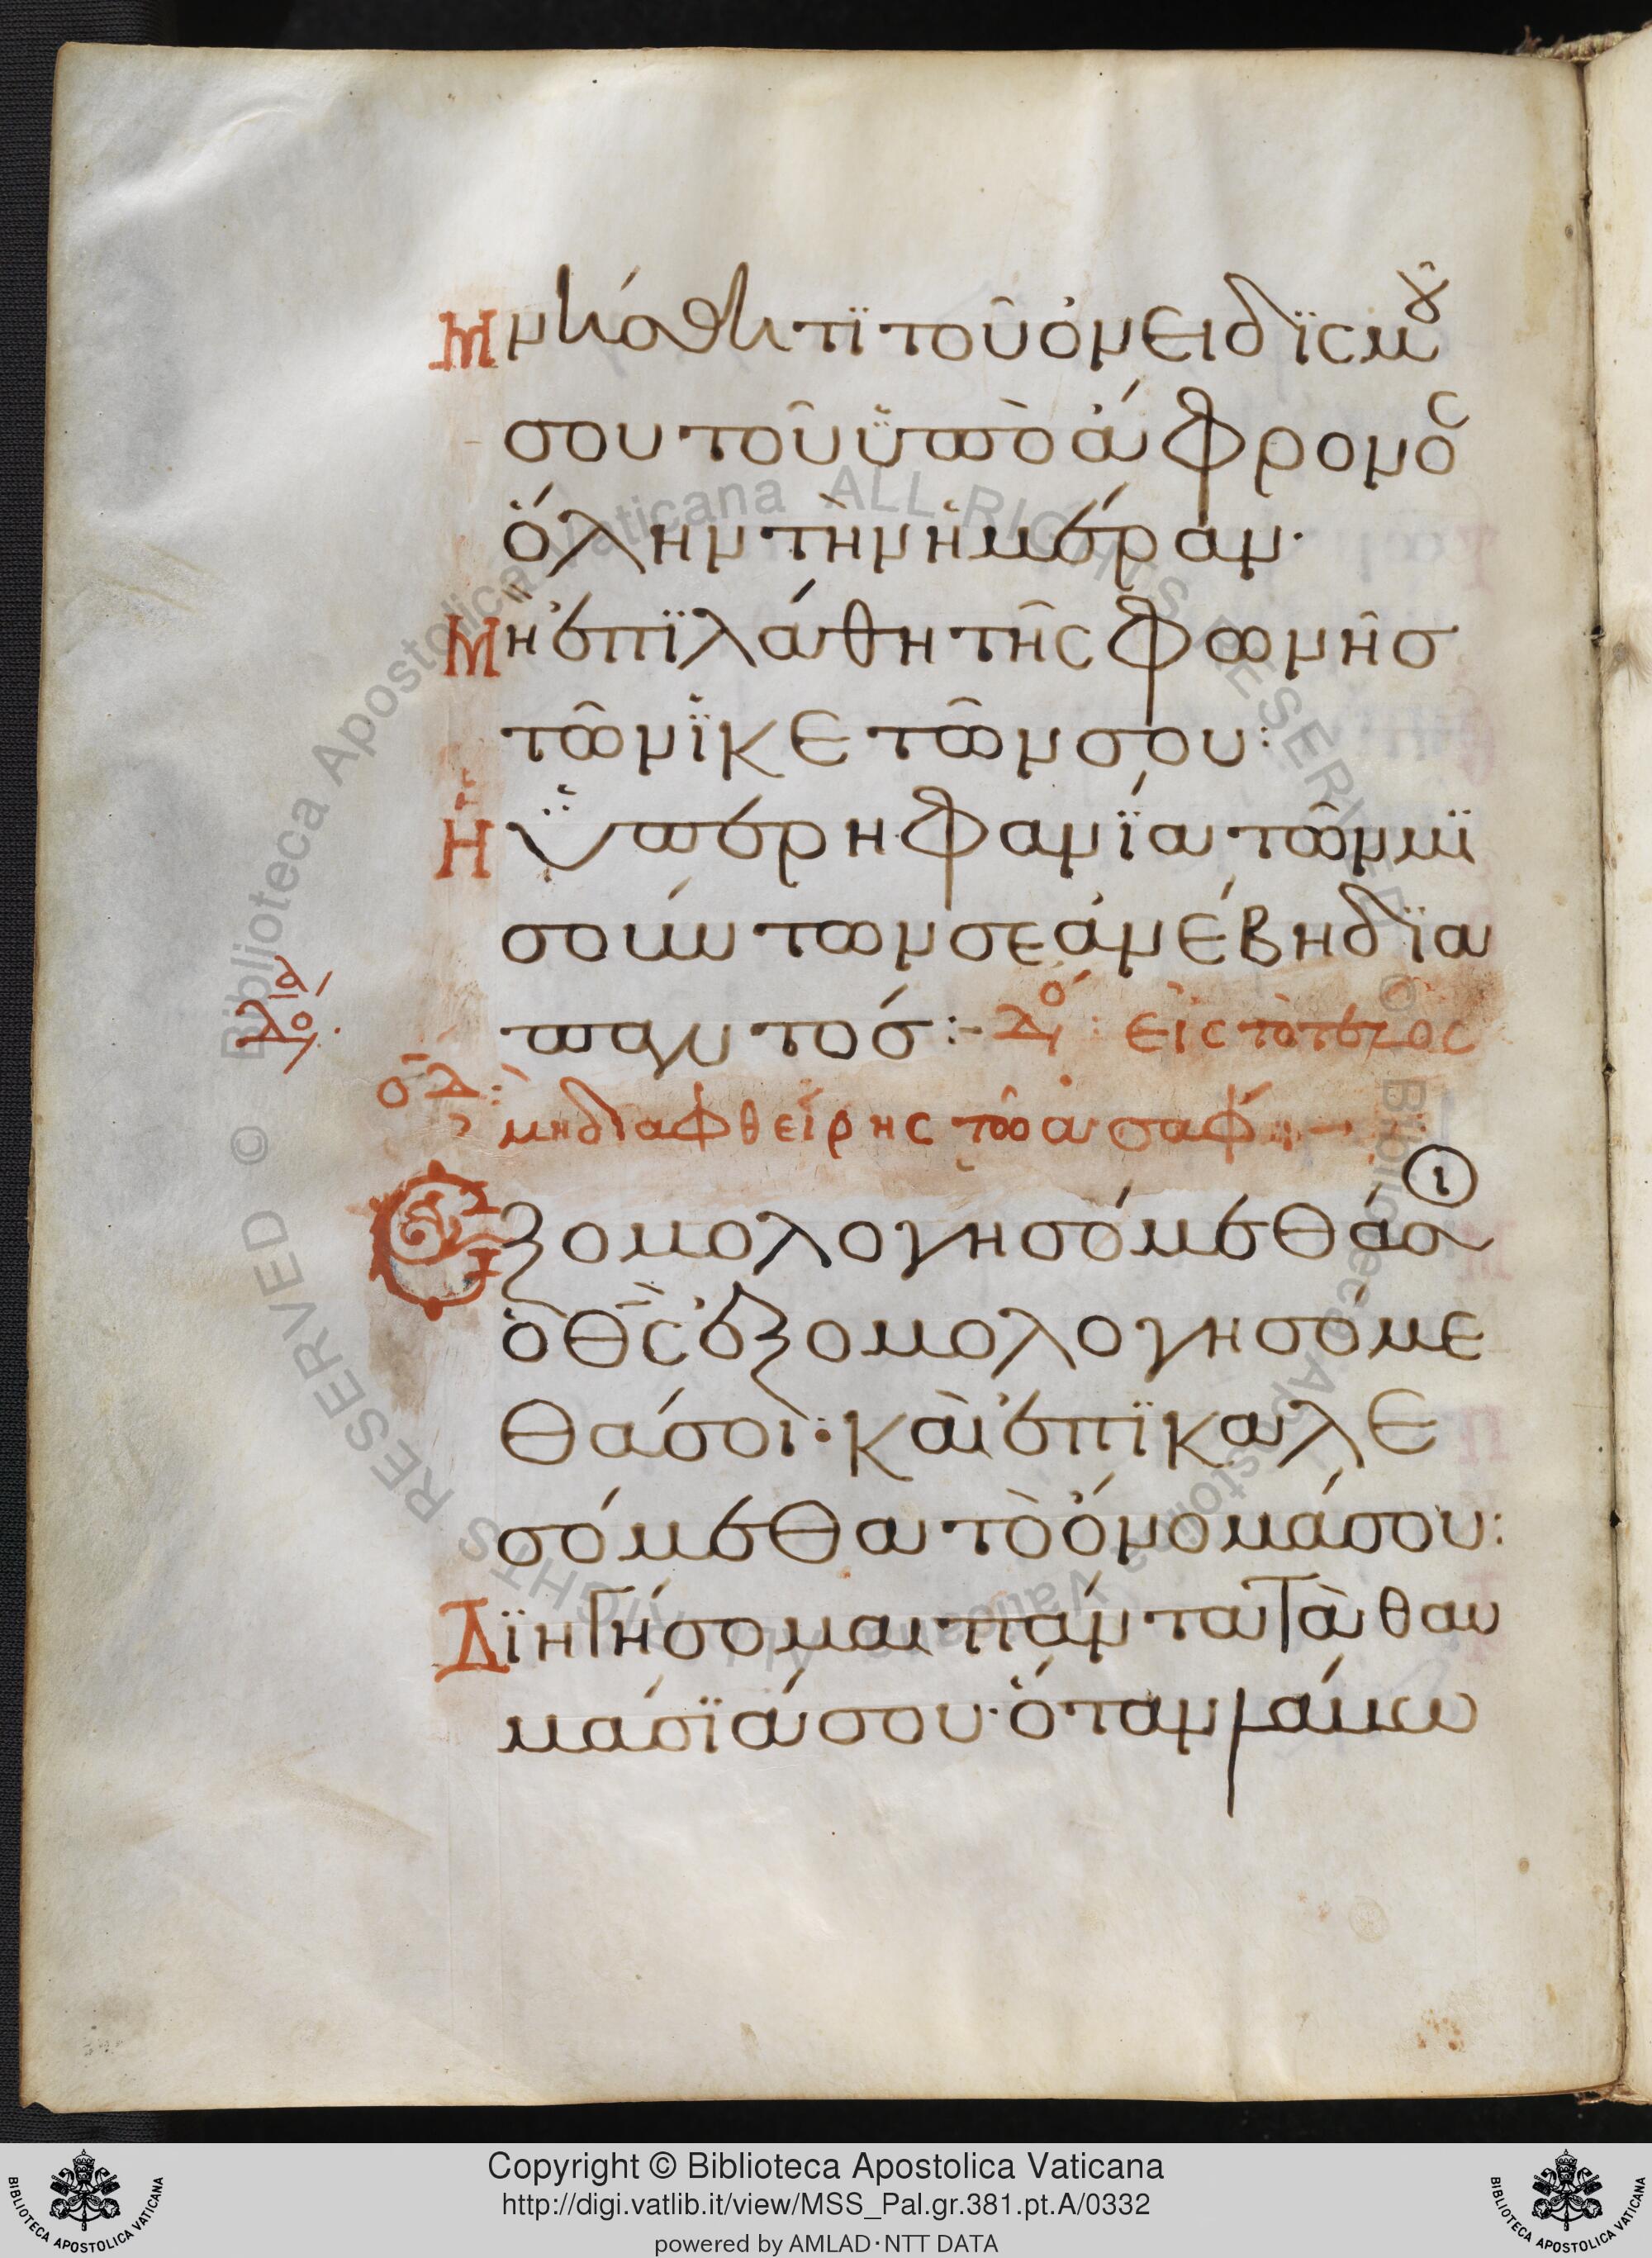 Μνήσθητϊ τοῦ ὀνειδϊσμοῦ
σου τοῦ ὑπὸ ἄφρονος
ὅλην τὴν ἡμέραν·
Μὴ ἐπϊλάθη τῆς φωνῆσ
τῶν ἱκετῶν σου:
Ἡ ὑπερηφανϊα τῶν μϊ
σούντων σε ἀνέβη δϊα
παντός:- δο : εἰς τὸ τέλος
δ
δο.
οδ:
μὴ διαφθείρης τῶ ἀσαφ:-
ι
Ἐξομολογησόμεθά σοι
ὁ θς ἐξομολογησόμε
θά σοι: καὶ ἐπϊκαλε
σόμεθα τὸ ὄνομά σου:
Δϊηγήσομαι πάντα τὰ θαυ
μάσϊά σου· ὅταν λάβω
Copyright © Biblioteca Apostolica Vaticana
http://digi.vatlib.it/view/MSS_Pal.gr.381.pt.A/0332
powered by AMLAD·NTT DATA
BIBLIOTECA APOSTOLICA VATICANA
BIBLIOTECA APOSTOLICA VATICANA
© Biblioteca Apostolica Vaticana ALL RIGHTS RESERVED
© Biblioteca Apostolica Vaticana ALL RIGHTS RESERVED